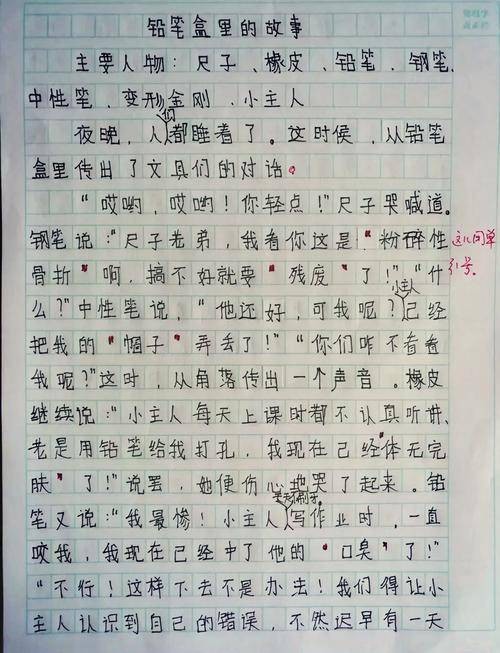 铅笔盒里的故事
主要人物：尺子、橡皮、铅笔、钢笔、
中性笔、变形金刚、小主人
夜晚，人们都睡着了。这时候，从铅笔
盒里传出了文具们的对话。
“哎哟，哎哟！你轻点！”尺子哭喊道。
钢笔说：“尺子老弟，我看你这是“粉碎性
这儿用单
骨折”啊，搞不好就要“残废”了！”“什
引号。
么？”中性笔说，“他还好，可我呢？小主人已经
把我的“帽子”弄丢了！”“你们咋不看看
我呢？”这时，从角落传出一个声音。橡皮
继续说：“小主人每天上课时都不认真听讲，
老是用铅笔给我打孔，我现在已经“体无完
肤”了！”说罢，她便伤心地哭了起来。铅
笔又说：“我最惨！小主人写作业时，一直
咬我，我现在已经中了他的“口臭”了！”
“不行！这样下去不是办法！我们得让小
主人认识到自己的错误，不然迟早有一天